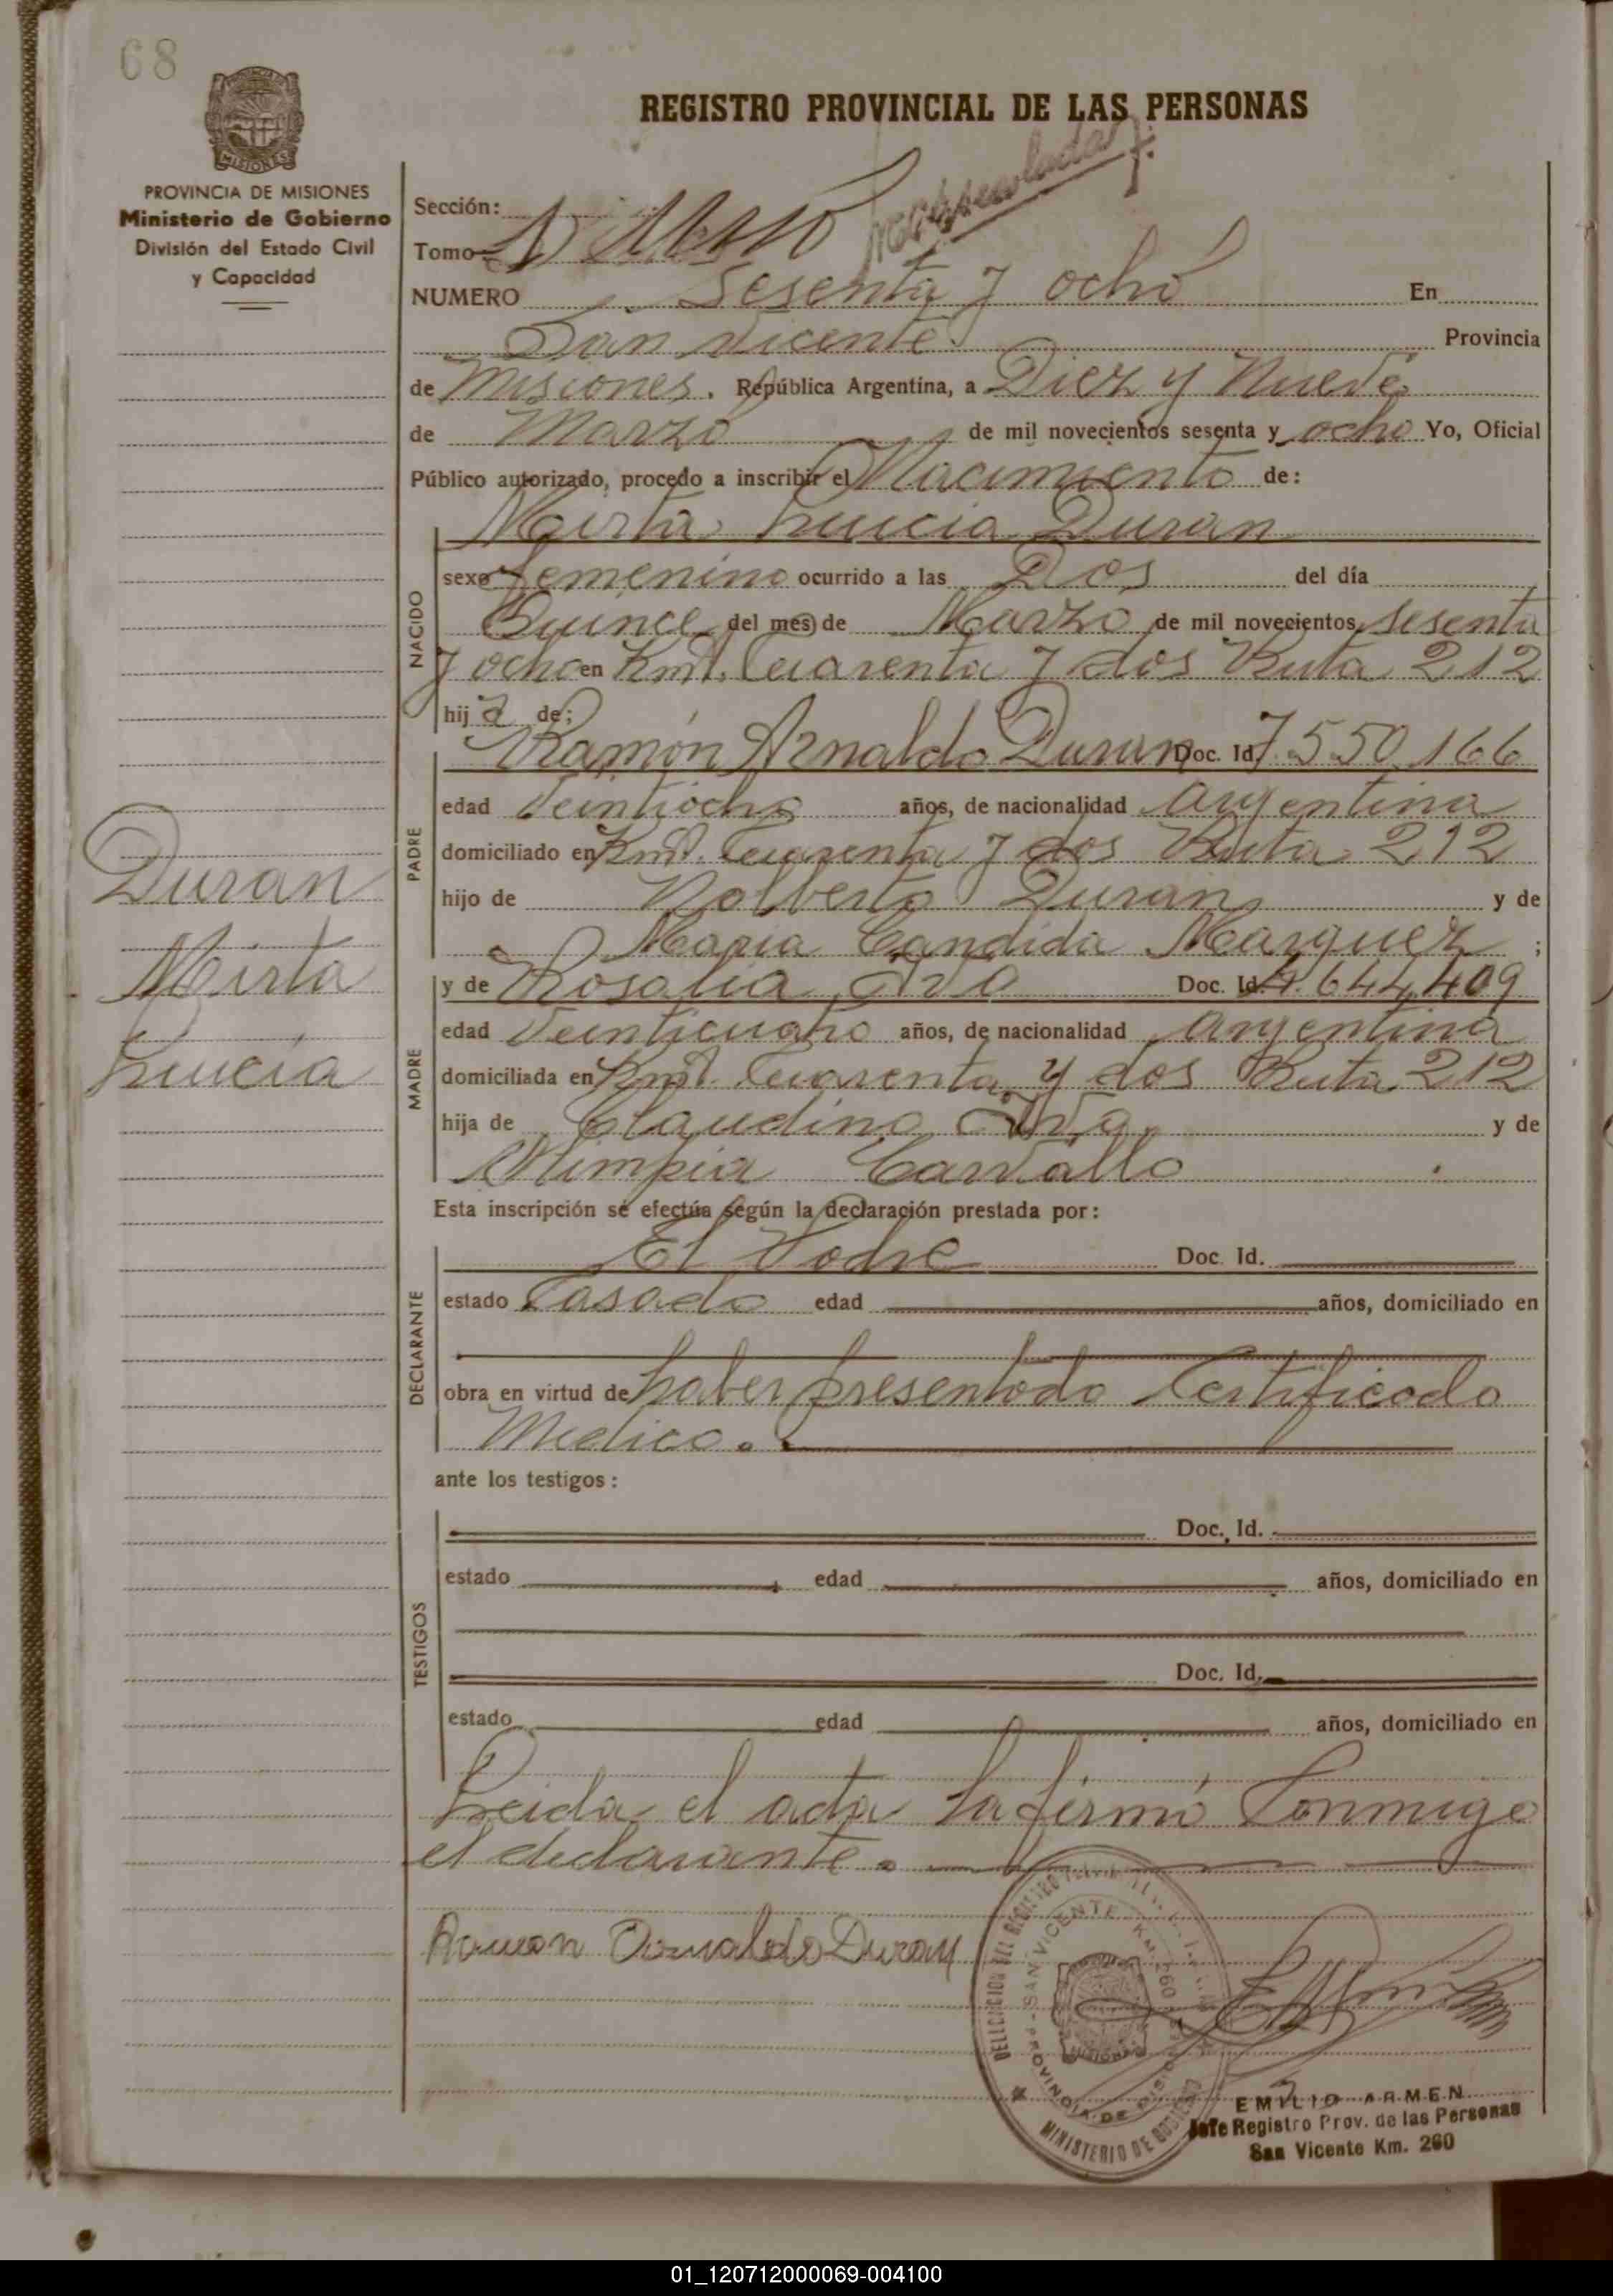 68
REGISTRO PROVINCIAL DE LAS PERSONAS
MISIONES
PROVINCIA DE MISIONES
Ministerio de Gobierno
División del Estado Civil
y Capacidad
Sección:
Tomo
NUMERO Sesenta y ocho En
San Vicente Provincia
de Misiones. República Argentina, a Diez y Nueve
de Marzo de mil novecientos sesenta y ocho Yo, Oficial
Público autorizado, procedo a inscribir el Nacimiento de:
Mirta Lucia Duran
NACIDO
sexo Femenino ocurrido a las Dos del día
Quince del mes de Marzo de mil novecientos sesenta
y ocho en Kmt. Cuarenta y dos Ruta 212
hija de:
PADRE
Ramón Arnaldo Duran Doc. Id. 7.550.166
edad Veintiocho años, de nacionalidad Argentina
domiciliado en Kmt. Cuarenta y dos Ruta 212
hijo de Nolberto Duran y de
Maria Candida Marquez ;
MADRE
y de Rosalia Doc. Id. 4.644.409
edad Veinticuatro años, de nacionalidad Argentina
domiciliada en Kmt. Cuarenta y dos Ruta 212
hija de Claudino y de
Olimpia Carvallo
Esta inscripción se efectúa según la declaración prestada por:
DECLARANTE
El Padre Doc. Id.
estado Casado edad años, domiciliado en
obra en virtud de haber presentado Certificado
Medico.
ante los testigos:
TESTIGOS
Doc. Id.
estado edad años, domiciliado en
Doc. Id.
estado edad años, domiciliado en
Leida el acta la firmó Conmigo
el declarante.
Duran
Mirta
Lucia
Ramon Duran
SAN VICENTE KM. 260
PROVINCIA DE MISIONES
MINISTERIO DE GOBIERNO
EMILIO ARMEN
Jefe Registro Prov. de las Personas
San Vicente Km. 260
01_120712000069-004100